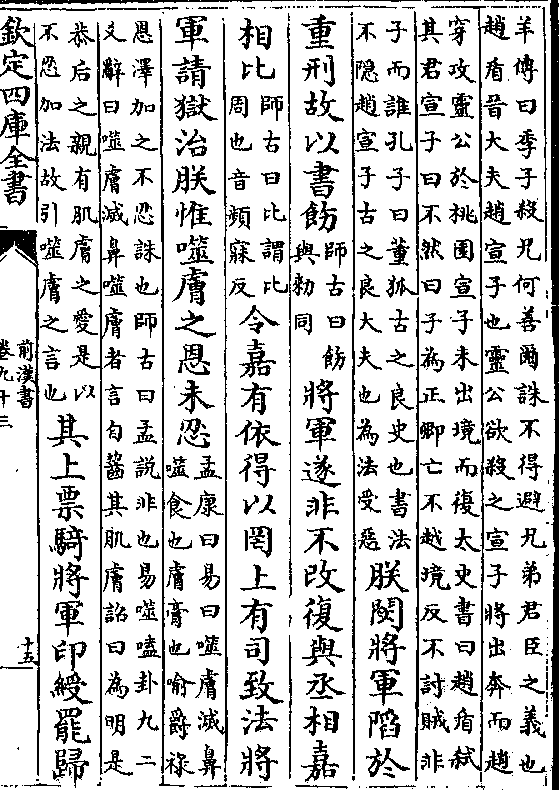 羊傳曰季子殺兄何善爾誅不得避兄弟君臣之義也
趙盾晉大夫趙宣子也靈公欲殺之宣子將出奔而趙
穿攻靈公於桃園宣子未出境而復太史書曰趙盾弑
其君宣子曰不然曰子為正卿亡不越境反不討賊非
子而誰孔子曰董狐古之良史也書法
不隠趙宣子古之良大夫也為法受惡
朕閔將軍陷於
重刑故以書飭
師古曰飭
與勑同
將軍遂非不改復與丞相嘉
相比
師古曰比謂比
周也音頻寐反
令嘉有依得以罔上有司致法將
軍請獄治朕惟噬膚之恩未忍
孟康曰易曰噬膚滅鼻
噬食也膚膏也喻爵祿
恩澤加之不忍誅也師古曰孟説非也易噬嗑卦九二
爻辭曰噬膚滅鼻噬膚者言自齧其肌膚詔曰為明是
恭后之親有肌膚之愛是以
不忍加法故引噬膚之言也
其上票騎將軍印綬罷歸
欽定四庫全書
前漢書
卷九十三
十五